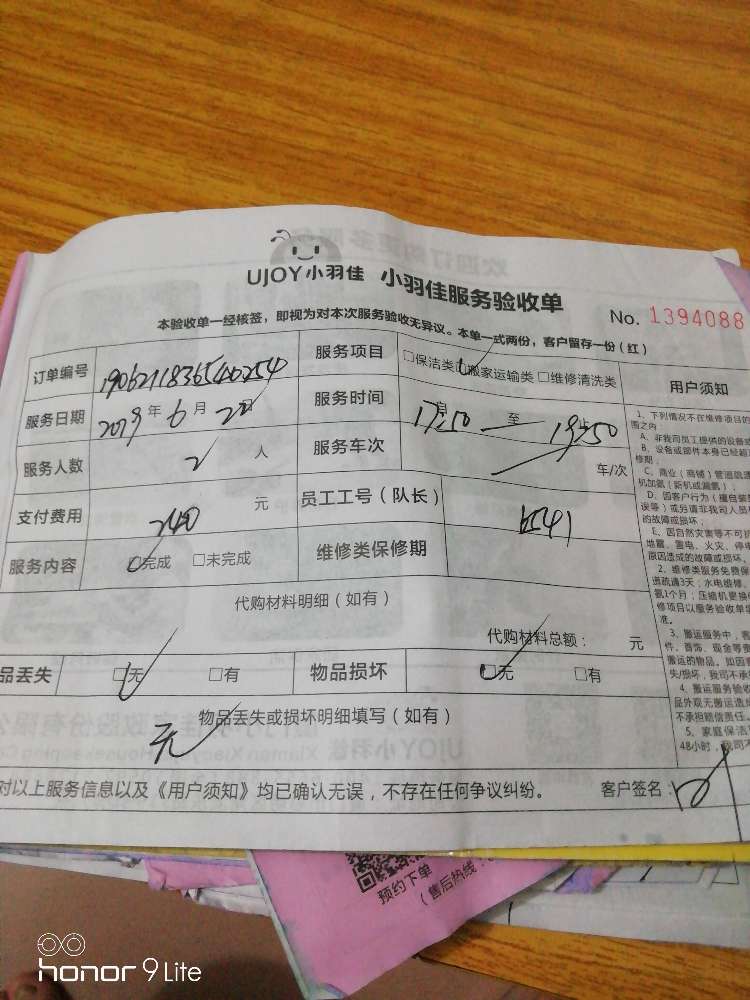 UJOY小羽佳 小羽佳服务验收单
No. 1394088
本验收单一经核签，即视为对本次服务验收无异议。本单一式两份，客户留存一份（红）
订单编号 1906211836540254 服务项目 □保洁类 □搬家运输类 □维修清洗类 用户须知
服务日期 2019年6月22日 服务时间 17:50 至 19:50
服务人数 2 人 服务车次 车/次
支付费用 240 元 员工工号（队长） 6541
服务内容 □完成 □未完成 维修类保修期
代购材料明细（如有）
代购材料总额： 元
品丢失 □无 □有 物品损坏 □无 □有
物品丢失或损坏明细填写（如有）
无
对以上服务信息以及《用户须知》均已确认无误，不存在任何争议纠纷。 客户签名：
1、下列情况不在维修项目的
围之内
A、非我司员工提供的设备或
B、设备或部件本身已经超
修期；
C、商业（商铺）管道疏通
机加氨（新机或漏氨）；
D、因客户行为（擅自装
误等）或另请非我司人员
的故障或损坏；
E、因自然灾害等不可抗
地震、雷电、火灾、停电
原因造成的故障或损坏。
2、维修类服务免费保
道疏通3天；水电维修、
氨1个月；压缩机更换
修项目以服务验收单
准。
3、搬运服务中，客
件、首饰、现金等贵
搬运的物品。如因
失/损坏，我司不承
4、搬运服务验收
品外观无搬运造成
不承担赔偿责任。
5、家庭保洁
48小时，我司不
预约下单
（售后热线：
honor 9 Lite